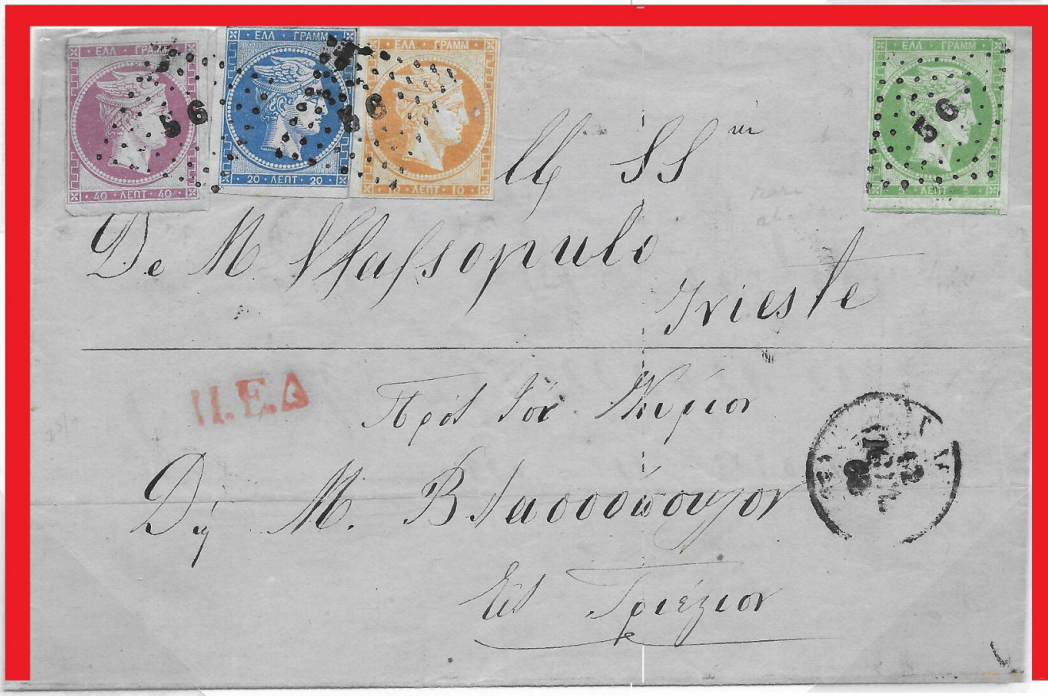 ΕΛΛ ΓΡΑΜΜ
40 ΛΕΠΤ 40
ΕΛΛ ΓΡΑΜΜ
20 ΛΕΠΤ 20
ΕΛΛ ΓΡΑΜΜ
ΛΕΠΤ 10
ΕΛΛ ΓΡΑΜΜ
ΛΕΠΤ 5
56
56
56
De M. Vlassopulo
Trieste
Π.Ε.Δ
Πρὸς τὸν Κύριον
Δη Μ. Βλασσόπουλον
Εἰς Τριέστιον